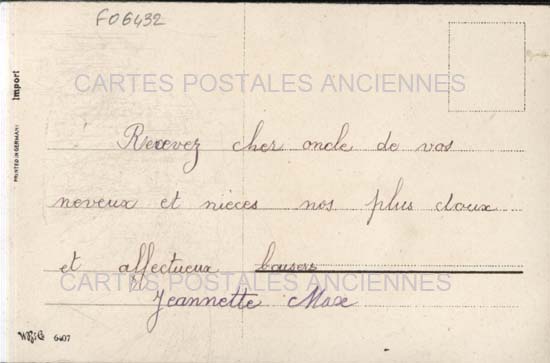 F06432
Import
PRINTED IN GERMANY
CARTES POSTALES ANCIENNES
Recevez cher oncle de vos
neveux et nièces nos plus doux
et affectueux baisers
CARTES POSTALES ANCIENNES
Jeannette Max
6407